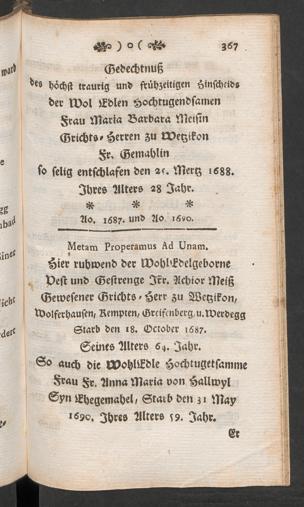 ) o ( 367
Gedechtnuß
des höchst traurig und frühzeitigen Hinscheids
der Wol Edlen Hochtugendsamen
Frau Maria Barbara Meisin
Grichts-Herren zu Wetzikon
Fr. Gemahlin
so selig entschlafen den 25. Mertz 1688.
Ihres Alters 28 Jahr.
* * *
Ao. 1687. und Ao. 1690.
Metam Properamus Ad Unam.
Hier ruhwend der WohlEdelgeborne
Vest und Gestrenge Jkr. Achior Meiß
Gewesener Grichts-Herr zu Wetzikon,
Wolferhausen, Kempten, Greifenberg, u. Werdegg
Starb den 18. October 1687.
Seines Alters 64. Jahr.
So auch die WohlEdle Hochtugetsamme
Frau Fr. Anna Maria von Hallwyl
Syn Ehegemahel, Starb den 31 May
1690. Ihres Alters 59. Jahr.
Er